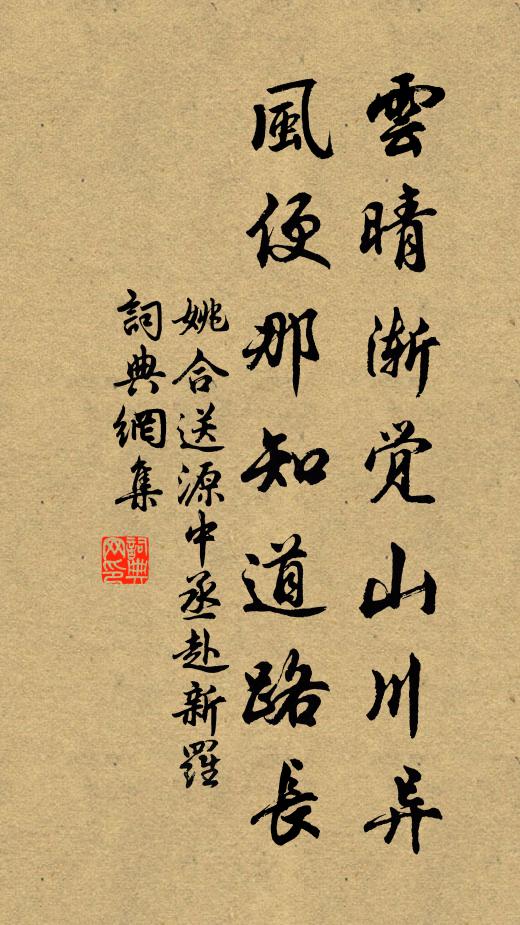 雲晴渐觉山川异
風便那知道路長
姚合送源中丞赴新羅
詞典網集
詞典网印